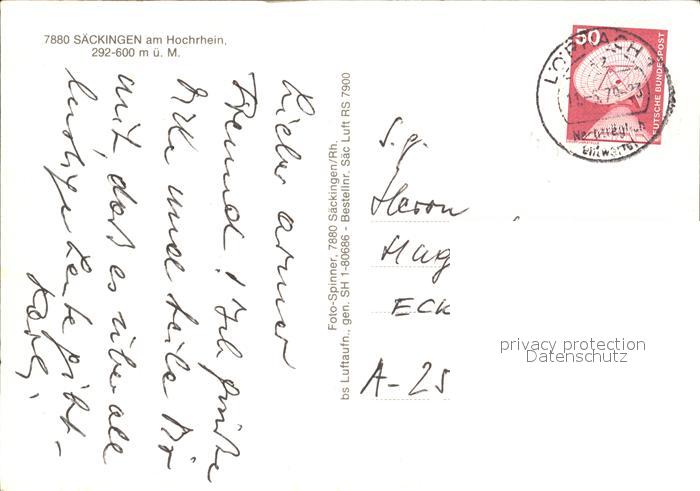 7880 SÄCKINGEN am Hochrhein,
292-600 m ü. M.
Lieber armer
Freund! Ich grüße
Dich und teile Dir
mit, daß es überall
lustige Leute gibt –
Foto-Spinner, 7880 Säckingen/Rh.
bs Luftaufn., gen. SH 1-80686 - Bestellnr. Säc Luft RS 7900
50
DEUTSCHE BUNDESPOST
LÖRRACH 1
Nachträglich
entwertet
S.g.
Herrn
Mag
ECK
A-25
privacy protection
Datenschutz